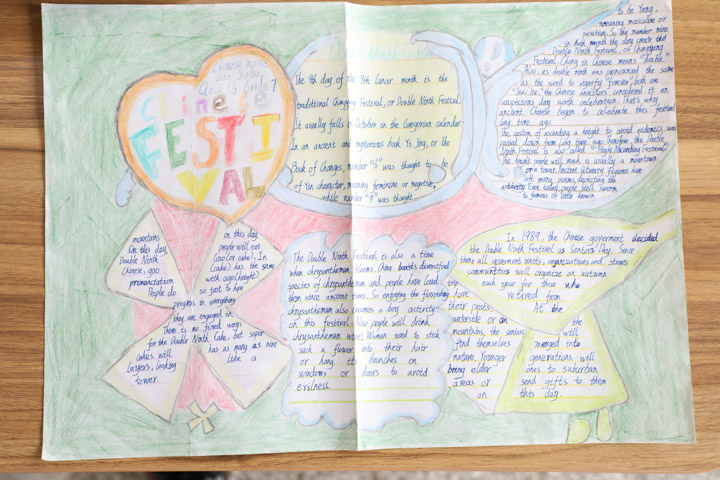 Chinese
FESTI
VAL
The 9th day of the 9th lunar month is the
traditional Chongyang Festival, or Double Ninth Festival.
It usually falls in October in the Gregorian calendar.
In an ancient and mysterious book Yi Jing, or the
Book of Changes, number "6" was thought to be
of Yin character, meaning feminine or negative,
while number "9" was thought
to be Yang,
meaning masculine or
positive. So the number nine
in both month the day create that
Double Ninth Festival, or Chongyang
Festival. Chong in Chinese means "double".
Also, as double ninth was pronounced the same
as the word to signify "forever", both are
"Jiu Jiu," the Chinese ancestors considered it an
auspicious day worth celebration. That's why
ancient Chinese began to celebrate this festival
long time ago.
The custom of ascending a height to avoid epidemics was
passed down from long time ago. Therefore, the Double
Ninth Festival is also called "Height Ascending Festival".
The height people will reach is usually a mountain
or a tower. Ancient literary figures have
left many poems depicting the
activity. Even today, people still swarm
to famous or little known
mountains
On this day
Double Ninth
Chinese, gao
pronunciation
People do
on this day
people will eat
Gao (or cake). In
(cake) has the same
with gao (height)
so just to hope
progress in everything
they are engaged in.
There is no fixed ways
for the Double Ninth Cake, but super
cakes will has as many as nine
layers, looking like a
tower.
The Double Ninth Festival is also a time
when chrysanthemum blooms. China boasts diversified
species of chrysanthemum and people have loved
them since ancient times. So enjoying the flourishing
chrysanthemum also becomes a key activity
on this festival. Also people will drink
chrysanthemum wine. Women used to stick
such a flower into their hair
or hang its branches on
windows or doors to avoid
evilness.
In 1989, the Chinese goverment decided
the Double Ninth Festival as Seniors' Day. Since
then, all goverment units, organizations and streets
communities will organize an autumn
trip each year for those who
have retired from
their posts. At the
waterside or on the
mountains, the seniors will
find themselves merged into
nature. Younger generations will
bring elder ones to suburban
areas or send gifts to them
on this day.